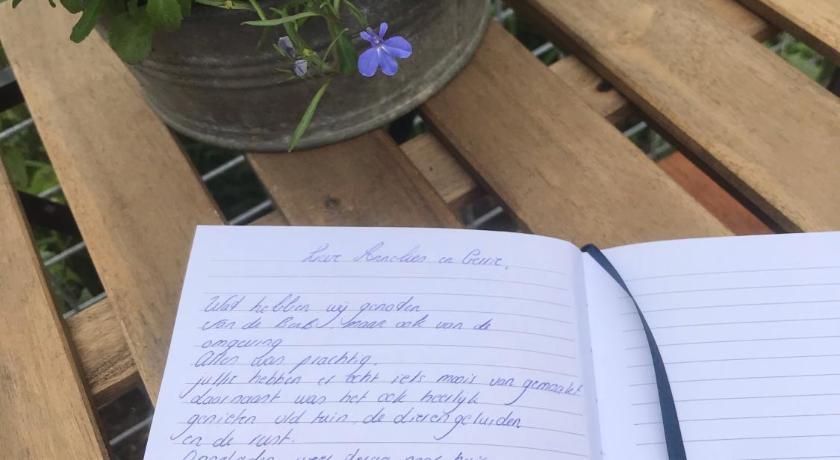 Lieve Annelies en Gerrie,
Wat hebben wij genoten
van de BenB, maar ook van de
omgeving
Alles dan prachtig.
jullie hebben er echt iets moois van gemaakt
daarnaast was het ook heerlijk
genieten v/d tuin, de dierengeluiden
en de rust.
weer naar huis